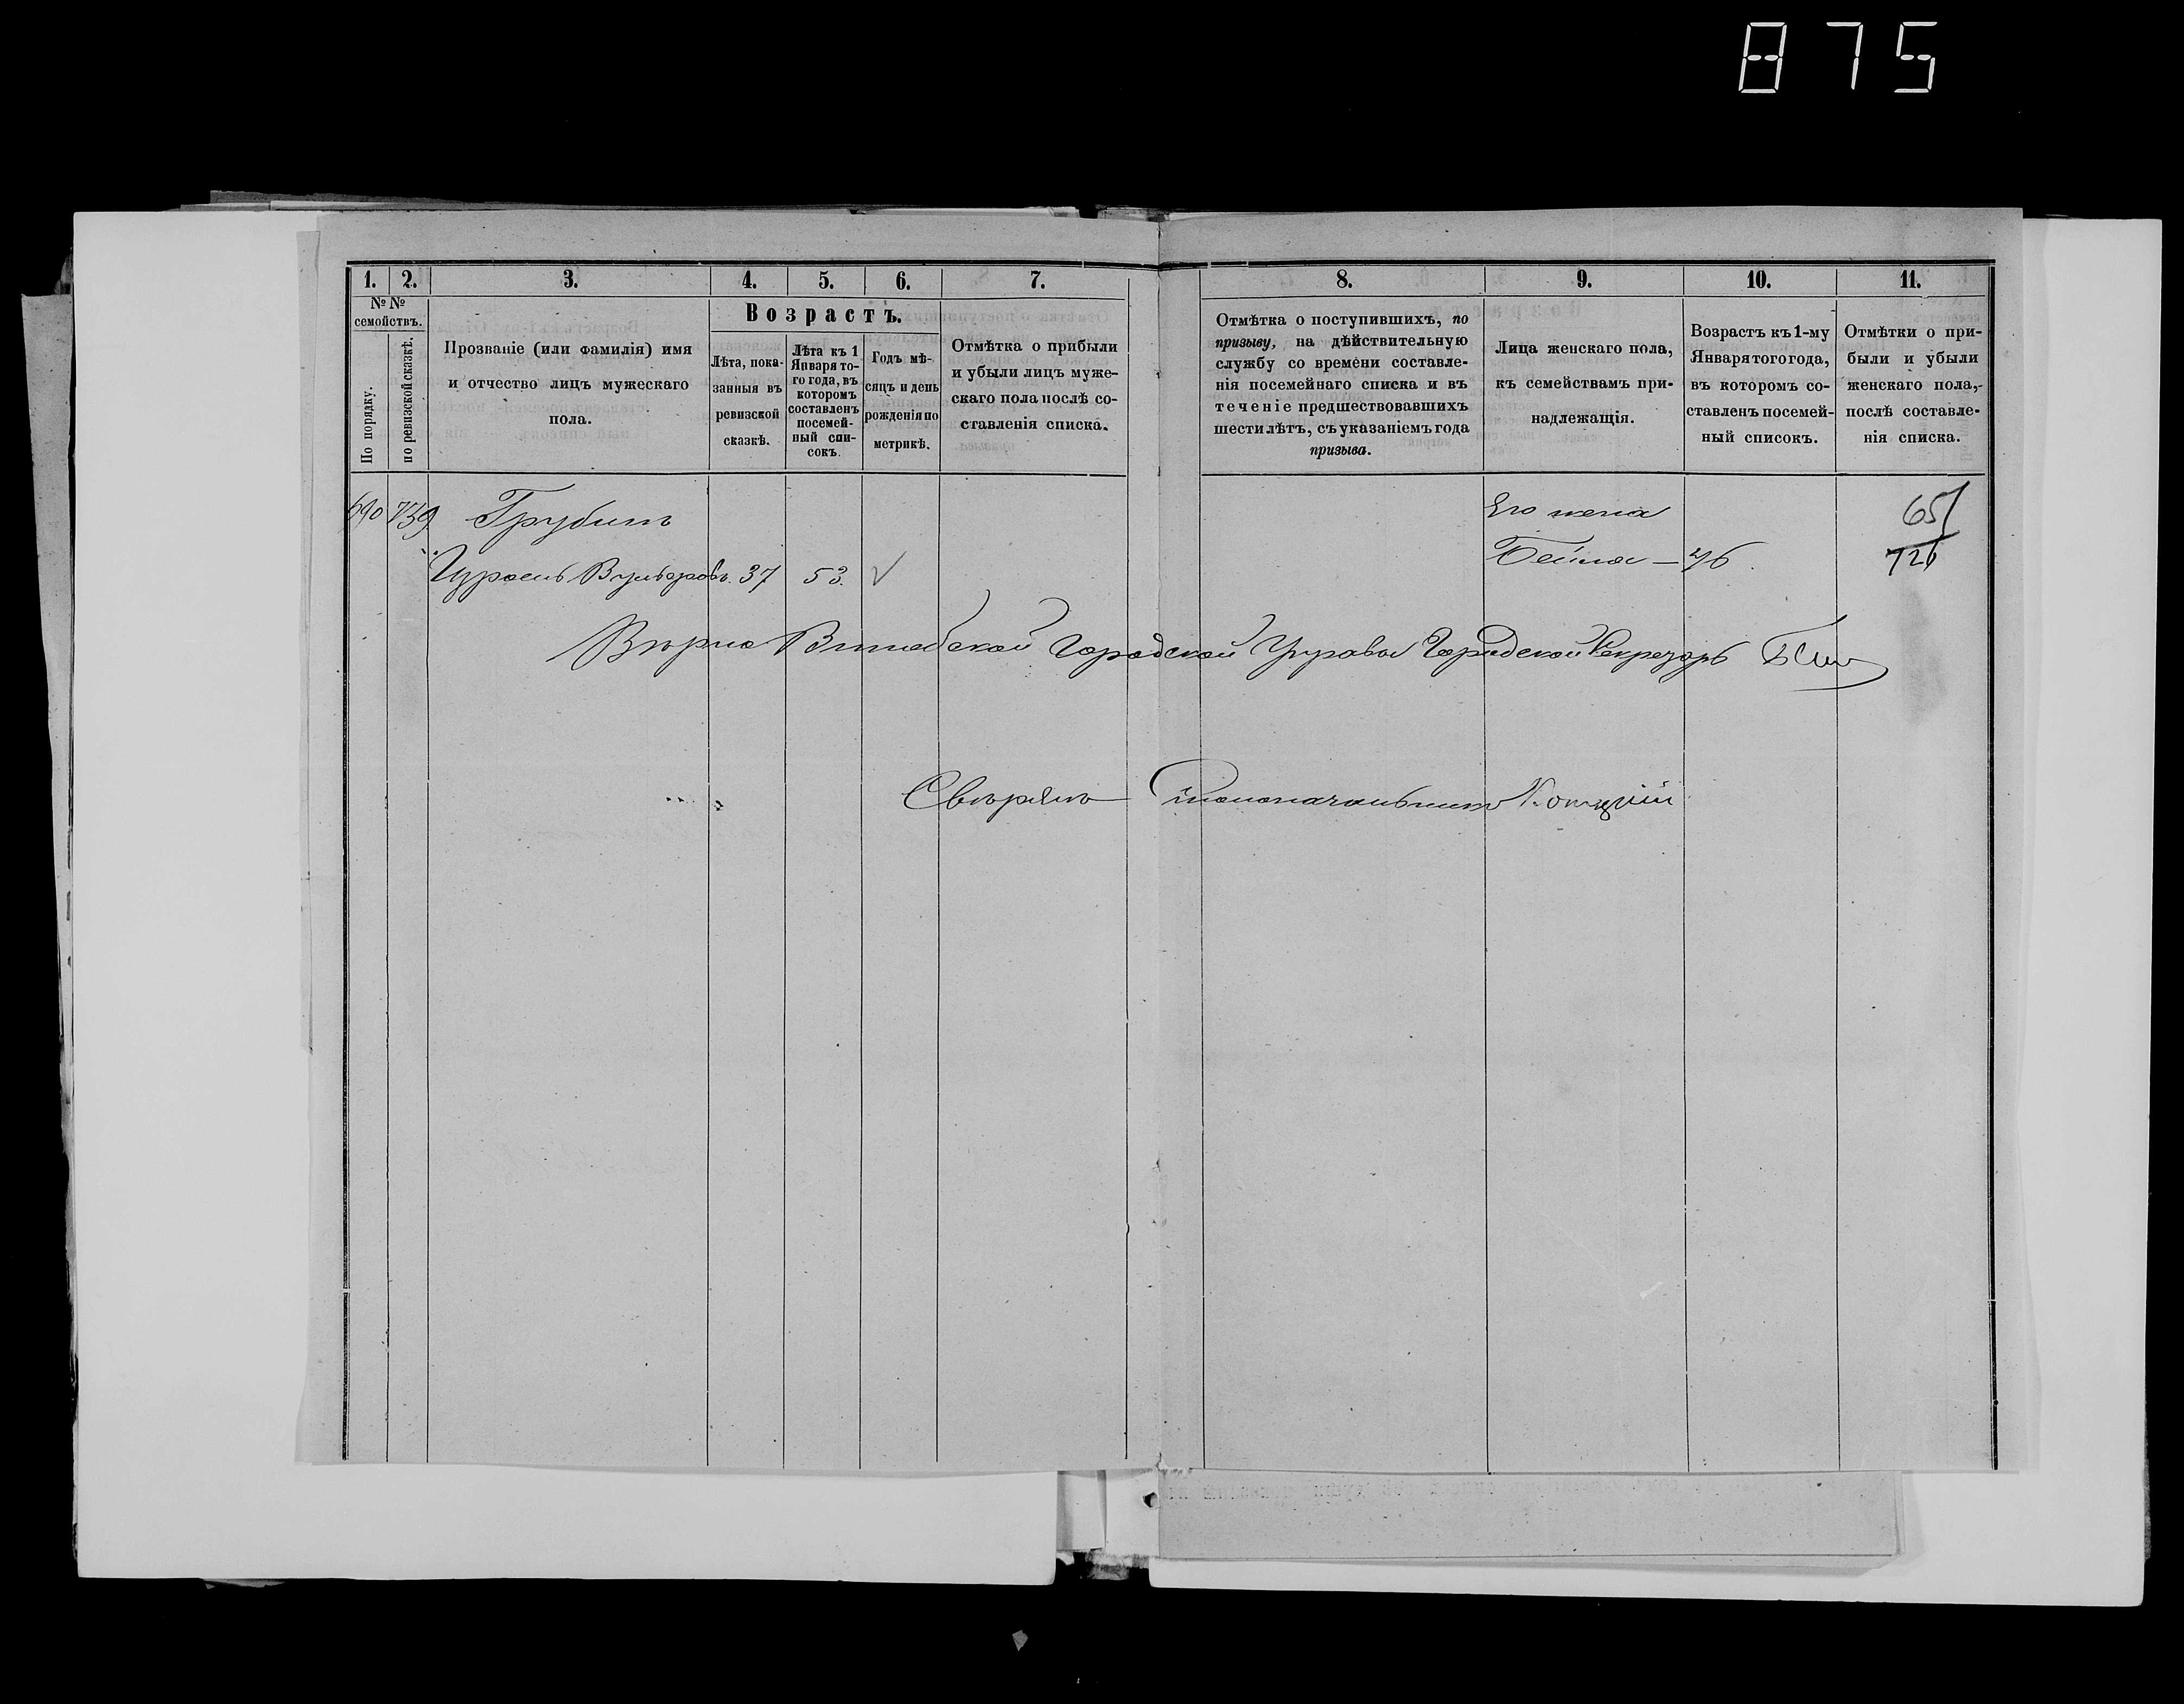 875
1. 2. 3. 4. 5. 6. 7. 8. 9. 10. 11.
№ №
семействъ.
По порядку.
по ревизской сказкѣ.
Прозваніе (или фамилія) имя
и отчество лицъ мужескаго
пола.
Возрастъ.
Лѣта, пока-
занныя въ
ревизской
сказкѣ.
Лѣта къ 1
Января то-
го года, въ
которомъ
составленъ
посемей-
ный спи-
сокъ.
Годъ мѣ-
сяцъ и день
рожденія по
метрикѣ.
Отмѣтка о прибыли
и убыли лицъ муже-
скаго пола послѣ со-
ставленія списка.
Отмѣтка о поступившихъ, по
призыву, на дѣйствительную
службу со времени составле-
нія посемейнаго списка и въ
теченіе предшествовавшихъ
шести лѣтъ, съ указаніемъ года
призыва.
Лица женскаго пола,
къ семействамъ при-
надлежащія.
Возрастъ къ 1-му
Января того года,
въ которомъ со-
ставленъ посемей-
ный списокъ.
Отмѣтки о при-
были и убыли
женскаго пола,
послѣ составле-
нія списка.
690 739 Грубинъ Его жена 651
Бейла — 46 726
37 53. √
Вѣрно Витебской Городской Управы Городской Секретарь
Свѣрялъ Столоначальникъ